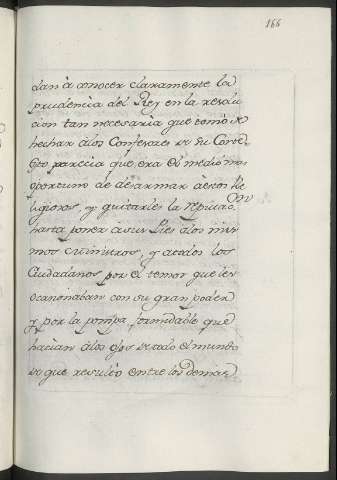 166
dan à conocer claramente la
prudencia del Rey en la resolu
cion tan necesaria que tomó de
hechar álos Confesores de su Corte
Esto parecia que era el medio mas
oportuno de desarmar áestos Re
ligiosos, y quitarles la reputac.on
hasta poner ásus Pies álos mis
mos Ministros, y atodos los
Ciudadanos por el temor que les
ocasionaban con su gran poder
y por la pompa formidable que
hacian álos ojos de todo el mundo
Lo que resultó entre los demas